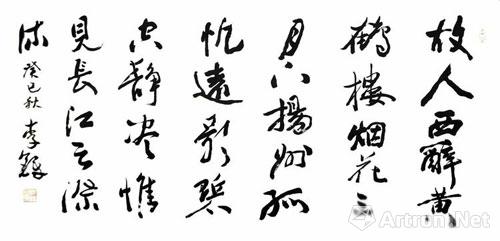 故人西辭黄
鶴樓烟花三
月下揚州孤
帆遠影碧
空静尽惟
見長江天際
流
癸巳秋 李
Artron.Net